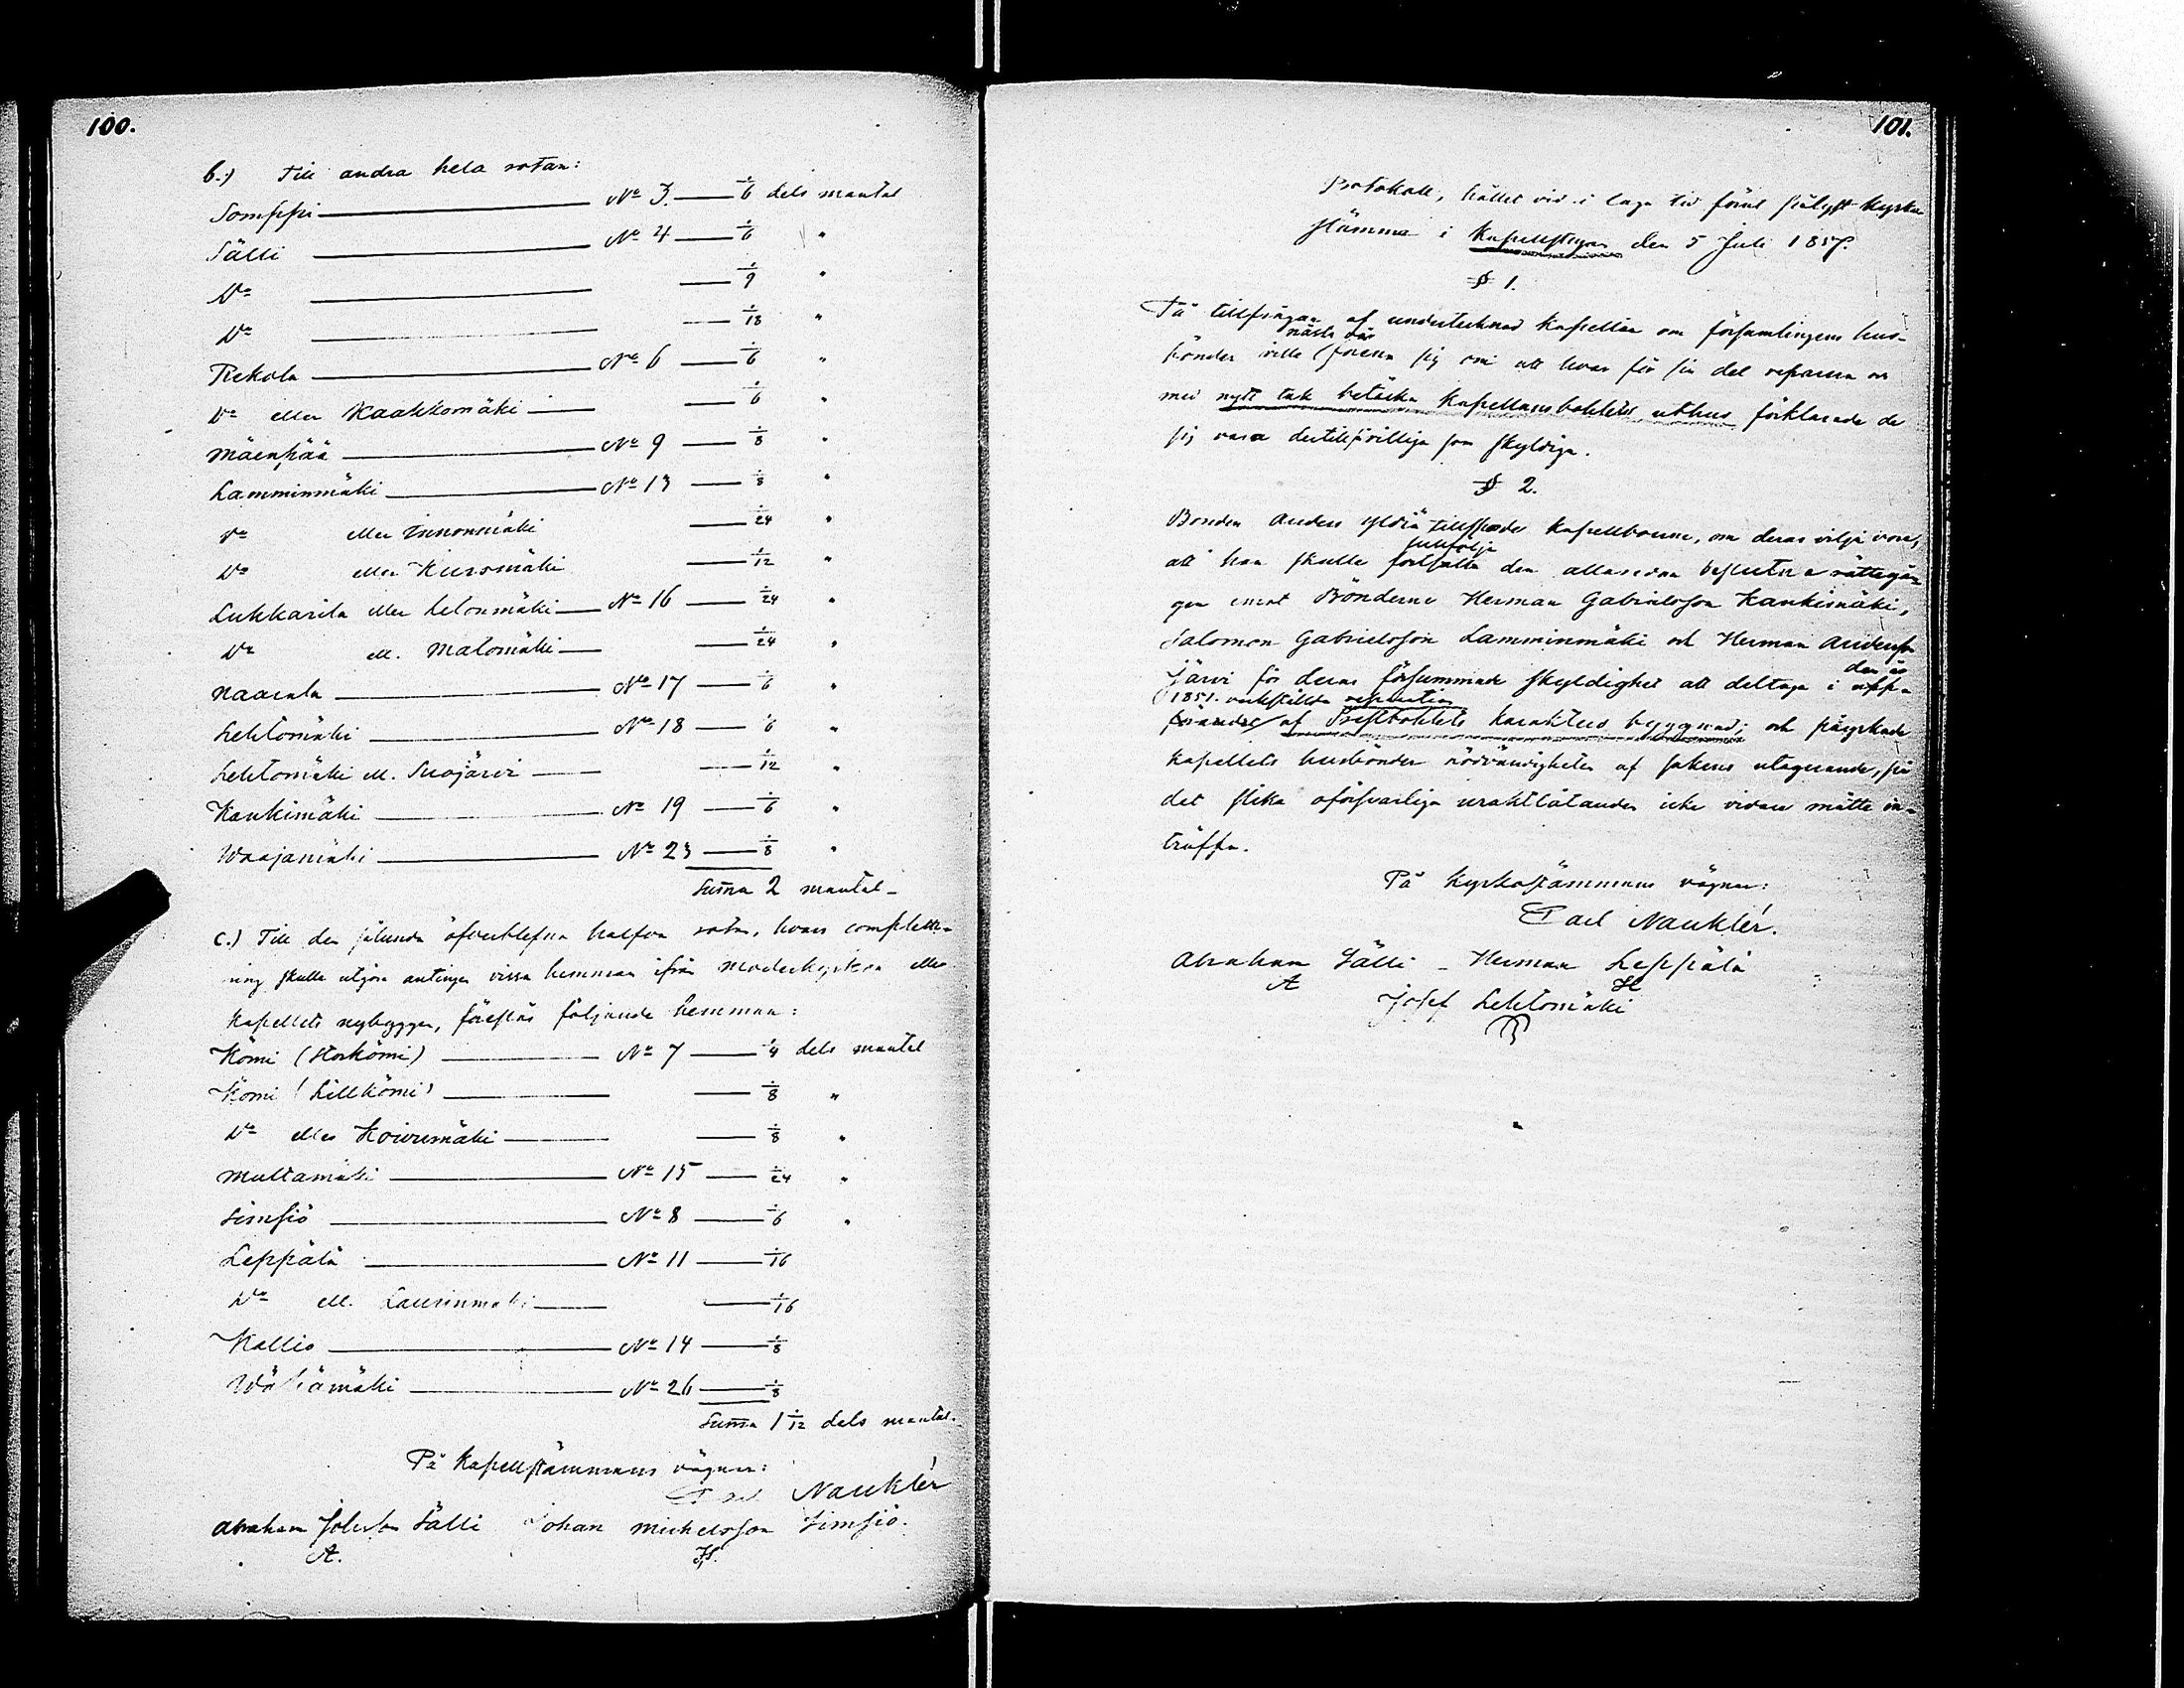 100.
b.) Till andra hela rotan:
Somppi — No 3. — 1/6 dels mantal
Sälli — No 4 — 1/6 "
Do — 1/9 "
Do — 1/18 "
Rekola — No 6 — 1/6 "
Do eller Kaakkomäki — 1/6 "
Mäenpää — No 9 — 1/8 "
Lamminmäki — No 13 — 1/8 "
Do eller — 1/24 "
Do eller — 1/12 "
Lukkarila eller — No 16 — 1/24 "
Do ell. Matomäki — 1/24 "
— No 17 — 1/6 "
Lehtomäki — No 18 — 1/6 "
Lehtomäki ell. Suojärvi — 1/12 "
Kankimäki — No 19 — 1/6 "
Waajamäki — No 23 — 1/8 "
Summa 2 mantal
c.) Till den sålunda öfverblefna halfva rotan, hvars complette-
ring skulle utgöra antingen vissa hemman ifrån moderkyrkan eller
Kapellets nybyggen, föreslås följande hemman:
Kömi (Storkömi) — No 7 — 1/4 dels mantal
Kömi (Lillkömi) — 1/8 "
Do eller Koivumäki — 1/8 "
Multamäki — No 15 — 1/24 "
Simsiö — No 8 — 1/6 "
Leppälä — No 11 — 1/16
Do ell. Laurinmäki — 1/16
Kallio — No 14 — 1/8
Wähämäki — No 26 — 1/8
Summa 1 1/12 dels mantal.
På Kapellstämmans vägnar:
Carl Nauklér
Abraham Sälli Johan Michelsson Simsiö.
A.
101.
Protokoll, hållet vid i laga tid förut pålyst kyrko
stämma i Kapellstugan den 5 Juli 1857.
§ 1.
På tillfrågan af undertecknad Kapellan om församlingens hus-
bönder ville nästa vår förena sig om att hvar för sin del reparera och
med nytt tak betäcka Kapellansbohlets uthus förklarade de
sig vara dertill villiga som skyldiga.
§ 2.
Bonden Anders tillsporde Kapellboerne, om deras vilja vore,
att han skulle fullfölja den allaredan beslutna rättegån-
gen emot Bönderne Herman Gabrielsson Kankimäki,
Salomon Gabrielsson Lamminmäki och Herman Andersson
Järvi för deras försummade skyldighet att deltaga i den år
1851. verkställda reparation
af Prestbohlets karaktersbyggnad; och påyrkade
Kapellets husbönder nödvändigheten af sakens utagerande, på
det slika oförsvarliga uraktlåtanden icke vidare måtte in-
träffa.
På Kyrkostämmans vägnar:
Carl Nauklér.
Abraham Sälli – Herman Leppälä
A H
Josef Lehtomäki